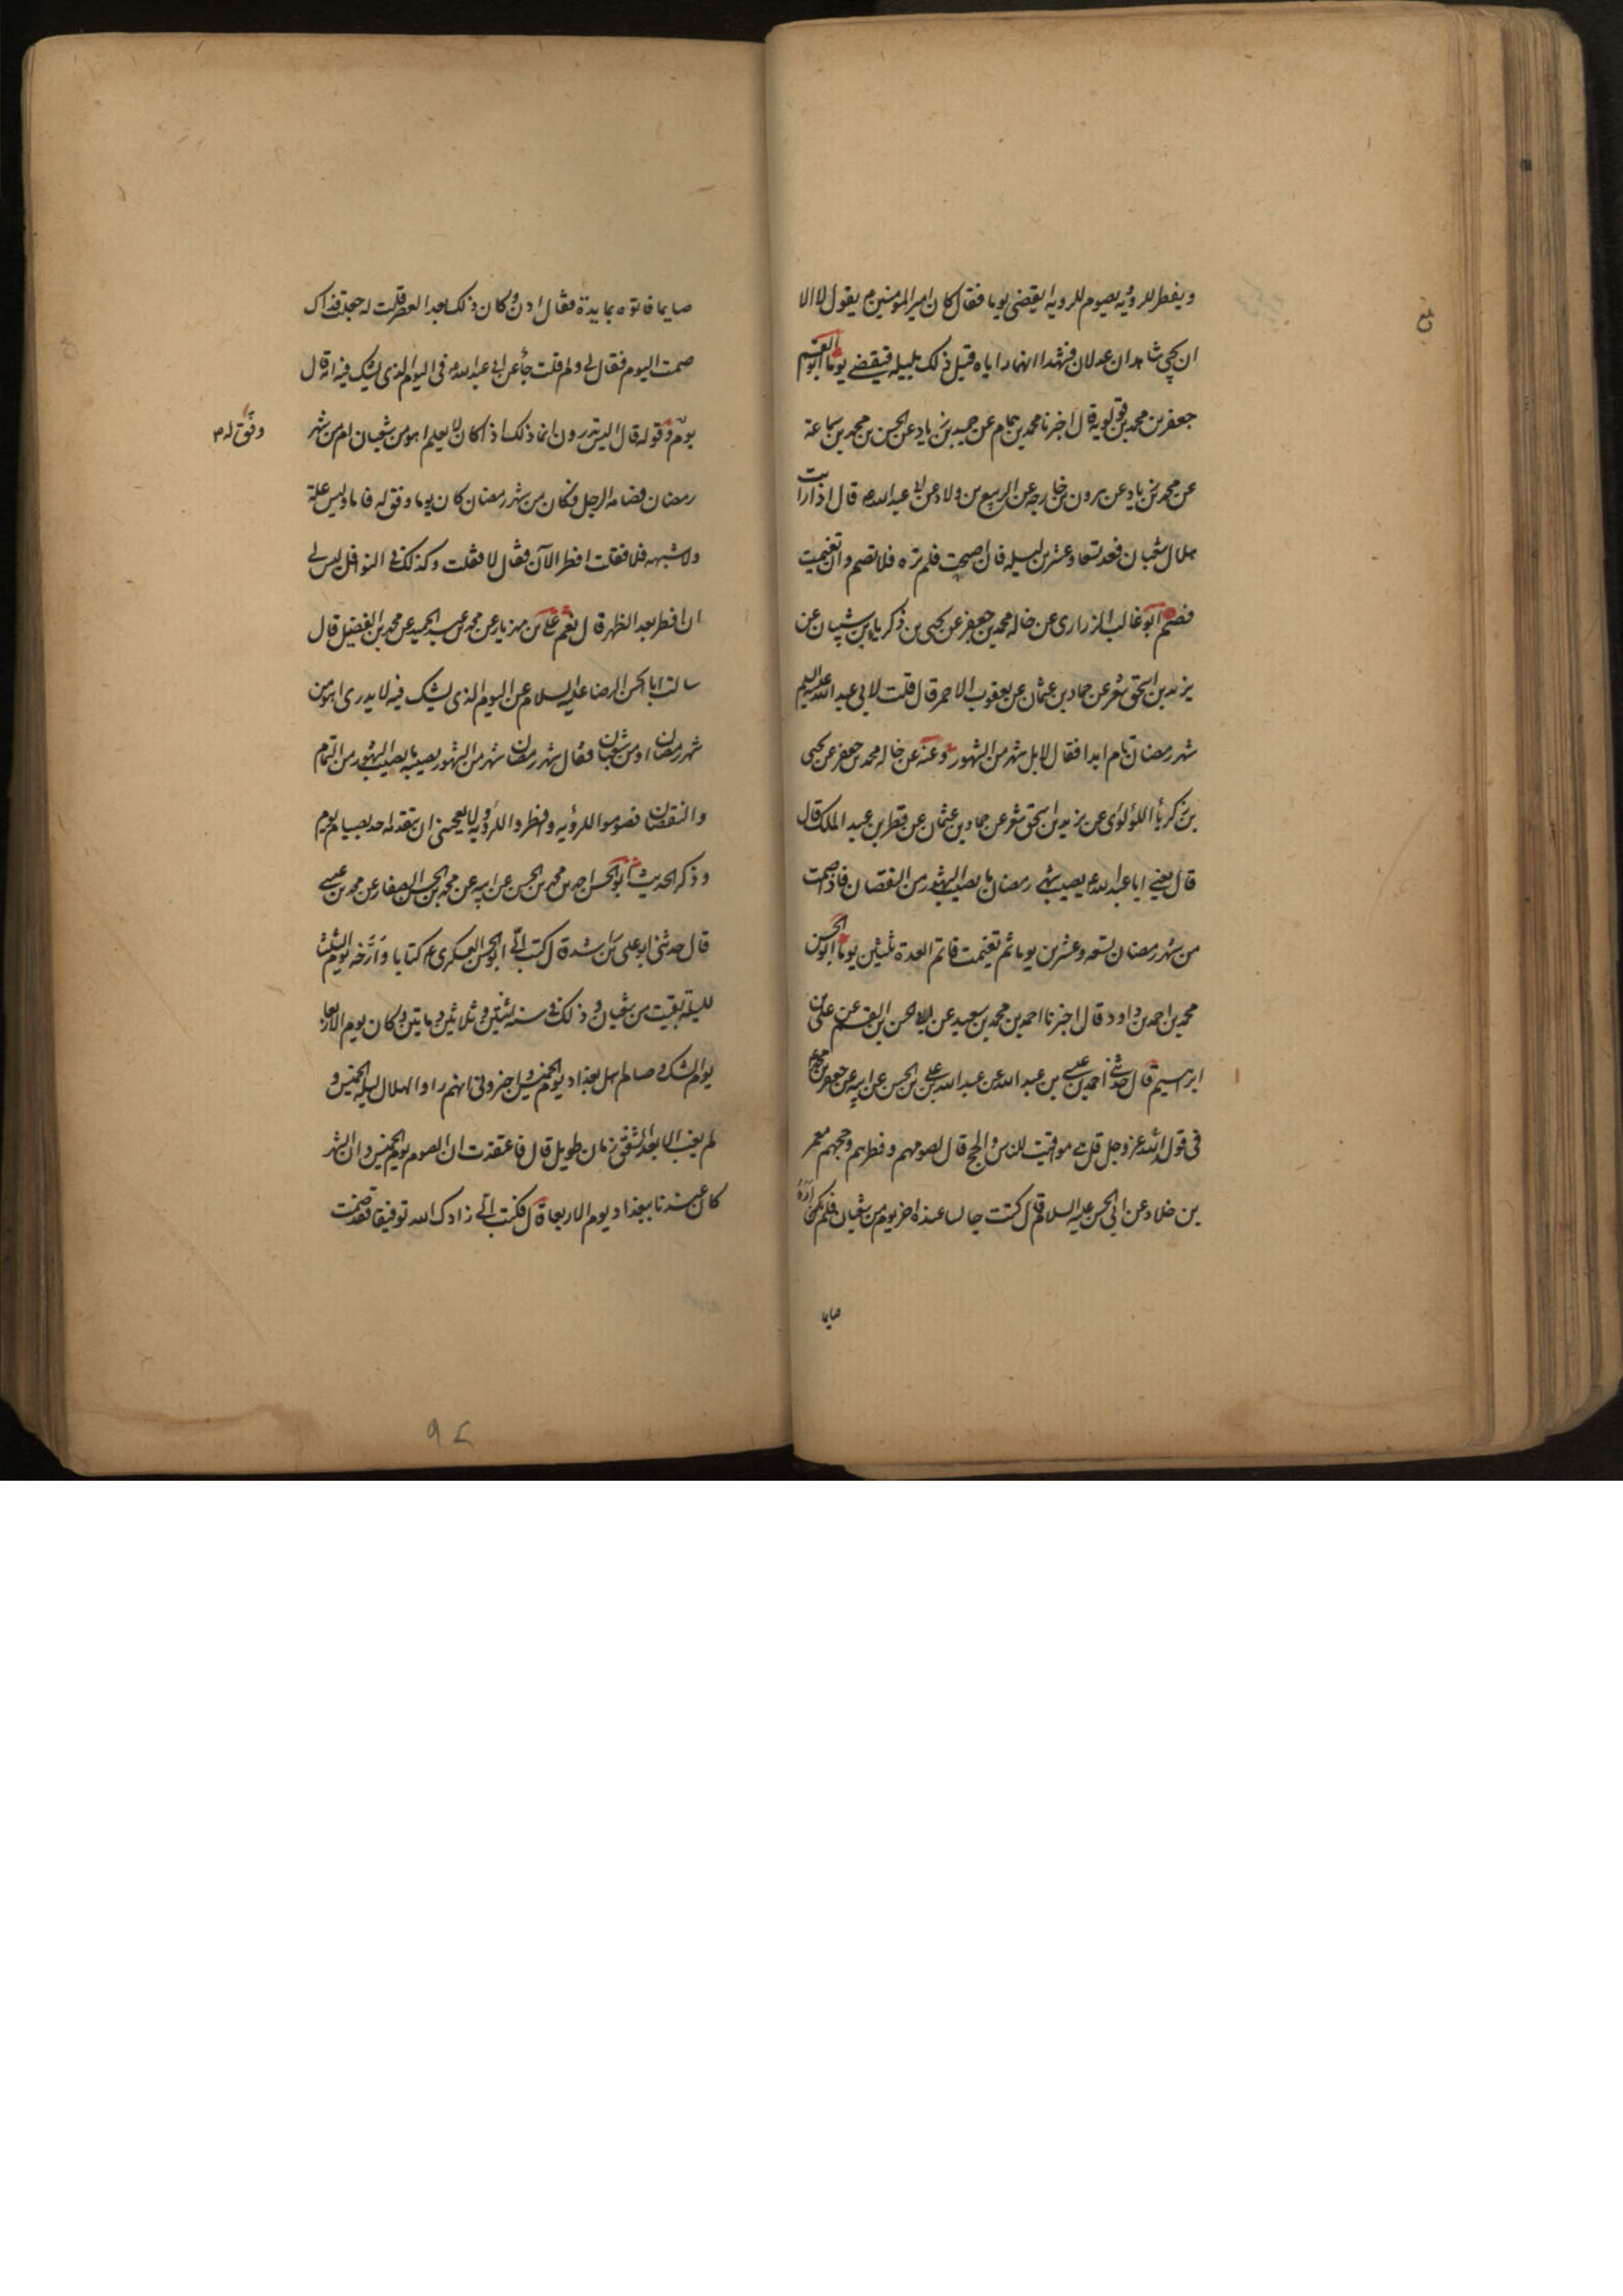 ويفطر للرؤية يصوم للرويه ايقضى يوما فقال كان امير المؤمنين ع يقول لا الا
ان يجئ شاهدان عدلان فيشهدا انهما راياه قبل ذلك بليله فيقضى يوما ابو القسم
جعفر بن محمد بن قولويه قال اخبرنا محمد بن همام عن حميد بن زياد عن الحسن بن محمد بن سماعة
عن محمد بن زياد عن هرون بن خارجه عن الربيع بن ولاد عن ابي عبد الله ع قال اذا رايت
هلال شعبان فعد تسعا وعشرين ليله فان اصحت فلم تره فلا تصم وان تغيمت
فصم ابو غالب الزراري عن خاله محمد بن جعفر عن يحيى بن زكريا بن شيبان عن
يزيد بن اسحق شعر عن حماد بن عثمان عن يعقوب الاحمر قال قلت لابي عبد الله عليه السلم
شهر رمضان تام ابدا فقال لا بل شهر من الشهور وعنه عن خاله محمد بن جعفر عن يحيى
بن زكريا اللؤلؤى عن يزيد بن اسحق شعر عن حماد بن عثمان عن قطر بن عبد الملك قال
قال يعني ابا عبد الله ع يصيب شهر رمضان ما يصيب الشهور من النقصان فاذا صمت
من شهر رمضان تسعه وعشرين يوما ثم تغيمت فاتم العدة ثلثين يوما ابو الحسن
محمد بن احمد بن داود قال اخبرنا احمد بن محمد بن سعيد عن ابي الحسن بن القسم عن علي بن
ابرهيم قال حدثني احمد بن عيسى بن عبد الله عن عبد الله بن علي بن الحسن عن ابيه عن جعفر بن محمد ع
في قول الله عز وجل قل هي مواقيت للناس والحج قال لصومهم وفطرهم وحجهم معمر
بن خلاد عن ابي الحسن عليه السلام قال كنت جالسا عنده اخر يوم من شعبان فلم يكن اره
صايما
صايما فاتوه بمايدة فقال ادن وكان ذلك بعد العصر قلت له جعلت فداك
صمت اليوم فقال لي ولم قلت جاء عن ابي عبد الله ع في اليوم الذي يشك فيه انه قال
يوم وفق له قال اليس تدرون انما ذلك اذا كان لا يعلم اهو من شعبان ام من شهر
وفق له
رمضان فصامه الرجل فكان من شهر رمضان كان يوما وفق له فاما وليس علة
ولا شبهه فلا فقلت افطر الآن فقال لا فقلت وكذلك في النوافل ليس لي
ان افطر بعد الظهر قال نعم علي بن مهزيار عن محمد بن عبد الحميد عن محمد بن الفضيل قال
سالت ابا الحسن الرضا عليه السلام عن اليوم الذي يشك فيه لا يدرى اهو من
شهر رمضان او من شعبان فقال شهر رمضان شهر من الشهور يصيبه ما يصيب الشهور من التمام
والنقصان فصوموا للرؤيه وافطروا للرؤيه ولا يعجبني ان يتقدمه احد بصيام يوم
وذكر الحديث ابو الحسن احمد بن محمد بن الحسن عن ابيه عن محمد بن الحسن الصفار عن محمد بن عيسى
قال حدثني ابو علي بن راشد قال كتب الي ابو الحسن العسكري ع كتابا وارخه يوم الثلثا
لليلة بقيت من شعبان وذلك في سنه اثنتين وثلاثين ومايتين وكان يوم الاربعا
يوم الشك وصام اهل بغداد يوم الخميس واخبروني انهم راوا الهلال ليلة الخميس و
لم يغب الا بعد الشفق بزمان طويل قال فاعتقدت ان الصوم يوم الخميس وان الشهر
كان عندنا ببغداد يوم الاربعا قال فكتب الي زادك الله توفيقا فقد صمت